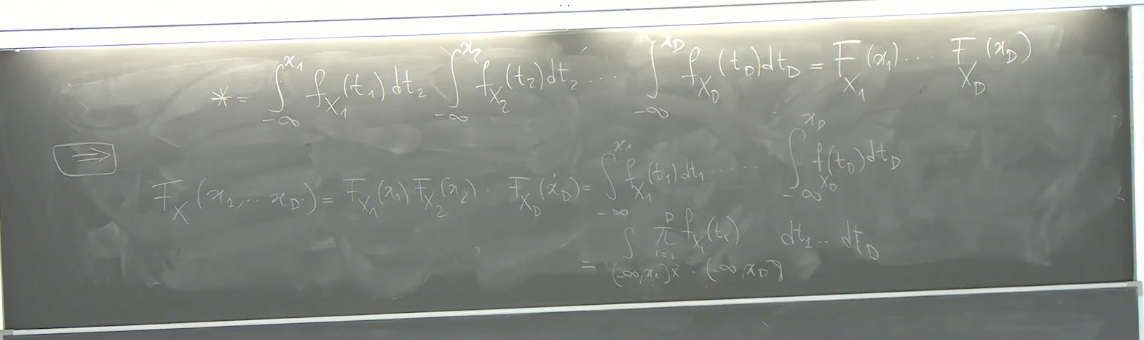 * = ∫_{-∞}^{x_1} f_{X_1}(t_1) dt_2 ∫_{-∞}^{x_2} f_{X_2}(t_2) dt_2 ... ∫_{-∞}^{x_D} f_{X_D}(t_D) dt_D = F_{X_1}(x_1) ... F_{X_D}(x_D)
⇒
F_X(x_1, ... x_D) = F_{X_1}(x_1) F_{X_2}(x_2) ... F_{X_D}(x_D) = ∫_{-∞}^{x_1} f_{X_1}(t_1) dt_1 ... ∫_{-∞}^{x_D} f_{X_D}(t_D) dt_D
= ∫_{(-∞, x_1] × ... (-∞, x_D]} π_{i=1}^{D} f_{X_i}(t_i) dt_1 ... dt_D